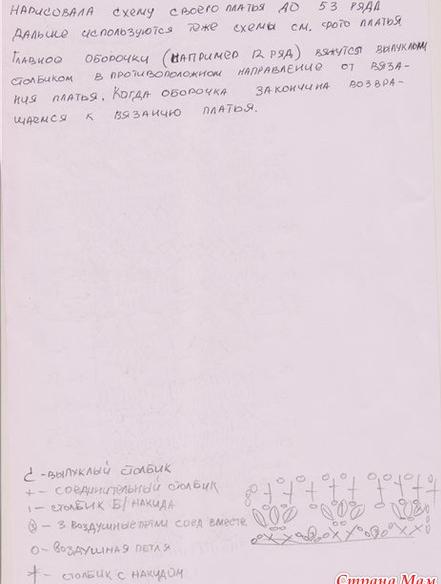 НАРИСОВАЛА СХЕМУ СВОЕГО ПЛАТЬЯ ДО 53 РЯДА
ДАЛЬШЕ ИСПОЛЬЗУЮТСЯ ТЕЖЕ СХЕМЫ СМ. ФОТО ПЛАТЬЯ
ГЛАВНОЕ ОБОРОЧКИ (НАПРИМЕР 12 РЯД) ВЯЖУТСЯ ВЫПУКЛЫМ
СТОЛБИКОМ В ПРОТИВОПОЛОЖНОМ НАПРАВЛЕНИЕ ОТ ВЯЗА-
НИЯ ПЛАТЬЯ. КОГДА ОБОРОЧКА ЗАКОНЧИНА ВОЗВРА-
ЩАЕМСЯ К ВЯЗАНИЮ ПЛАТЬЯ.
- ВЫПУКЛЫЙ СТОЛБИК
+ - СОЕДИНИТЕЛЬНЫЙ СТОЛБИК
ı - СТОЛБИК Б/НАКИДА
- 3 ВОЗДУШНЫЕ ПЕТЛИ СОЕД ВМЕСТЕ
О - ВОЗДУШНАЯ ПЕТЛЯ
- СТОЛБИК С НАКИДОМ
Страна Мам